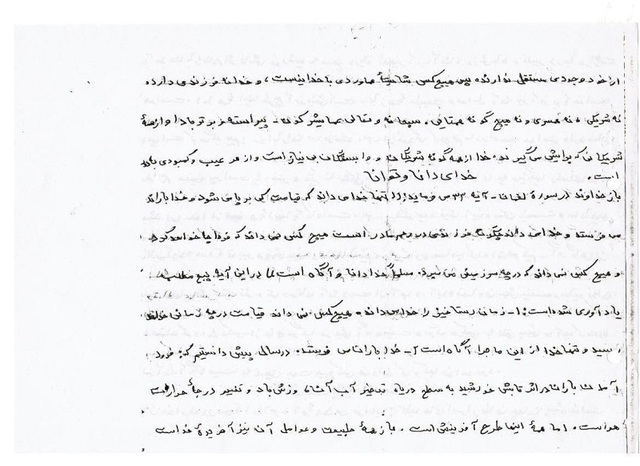 از خود وجودی مستقل ندارند پس هیچ کسی شایستهٔ هاوردی با خدا نیست، و خدا نه فرزندی دارد
نه شریکی، نه همسری و نه هیچ گونه همتایی. سبحانه و تعالی عما یشرکون - پیراسته و برتر باد از همهٔ
شریکان که برایش می گیرند. خدا از همه گونه شریکان و وابستگان بی نیاز است و از هر عیب و کمبودی پاک
است.
خدای دانا و توانا
باز خداوند در سورهٔ لقمان - آیه ۳۳ می فرماید: (( تنها خدا می داند که قیامت کی برپا می شود و خدا باران
می فرستد و خدا می داند چگونه فرزندی در رحم مادر است هیچ کسی نمی داند که فردا چه خواهد کرد
و هیچ کسی نمی داند که در چه سرزمینی می میرد. مسلماً خدا دانا و آگاه است )) در این آیه پنج مطلب
یادآوری شده است: ۱- زمان رستاخیز را خدا می داند - هیچ کس نمی داند قیامت در چه زمانی خواهد
رسید و تنها خدا از این ماجرا آگاه است ۲- خدا باران می فرستد. در سالهای پیش دانستیم که: فرود
آمدن باران در اثر تابش خورشید به سطح دریا، تبخیر آب آنها، وزش باد و تغییر درجهٔ حرارت
هواست. اما همهٔ اینها طرح آفرینش است. باز همهٔ طبیعت و عوامل آن نیز آفریدهٔ خداست